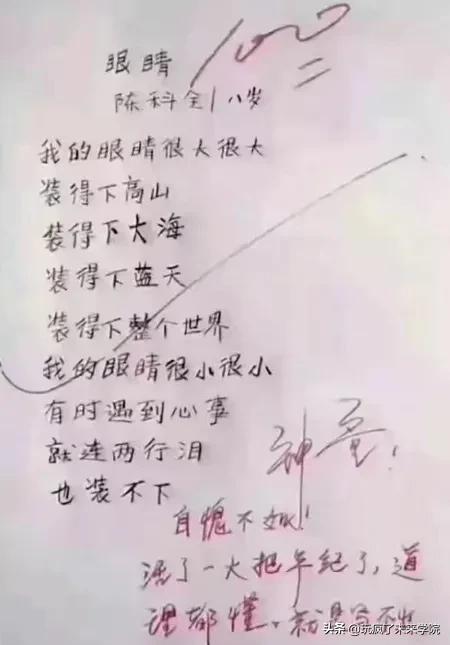 100
眼睛
陈科全/八岁
我的眼睛很大很大
装得下高山
装得下大海
装得下蓝天
装得下整个世界
我的眼睛很小很小
有时遇到心事
就连两行泪
也装不下
神童!
自愧不如!
活了一大把年纪了,道
理都懂。就是写不出
头条 @玩疯了未来学院